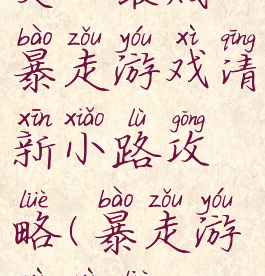 bào zǒu yóu xì qīng
暴走游戏清
xīn xiǎo lù gōng
新小路攻
lüè bào zǒu yóu
略(暴走游